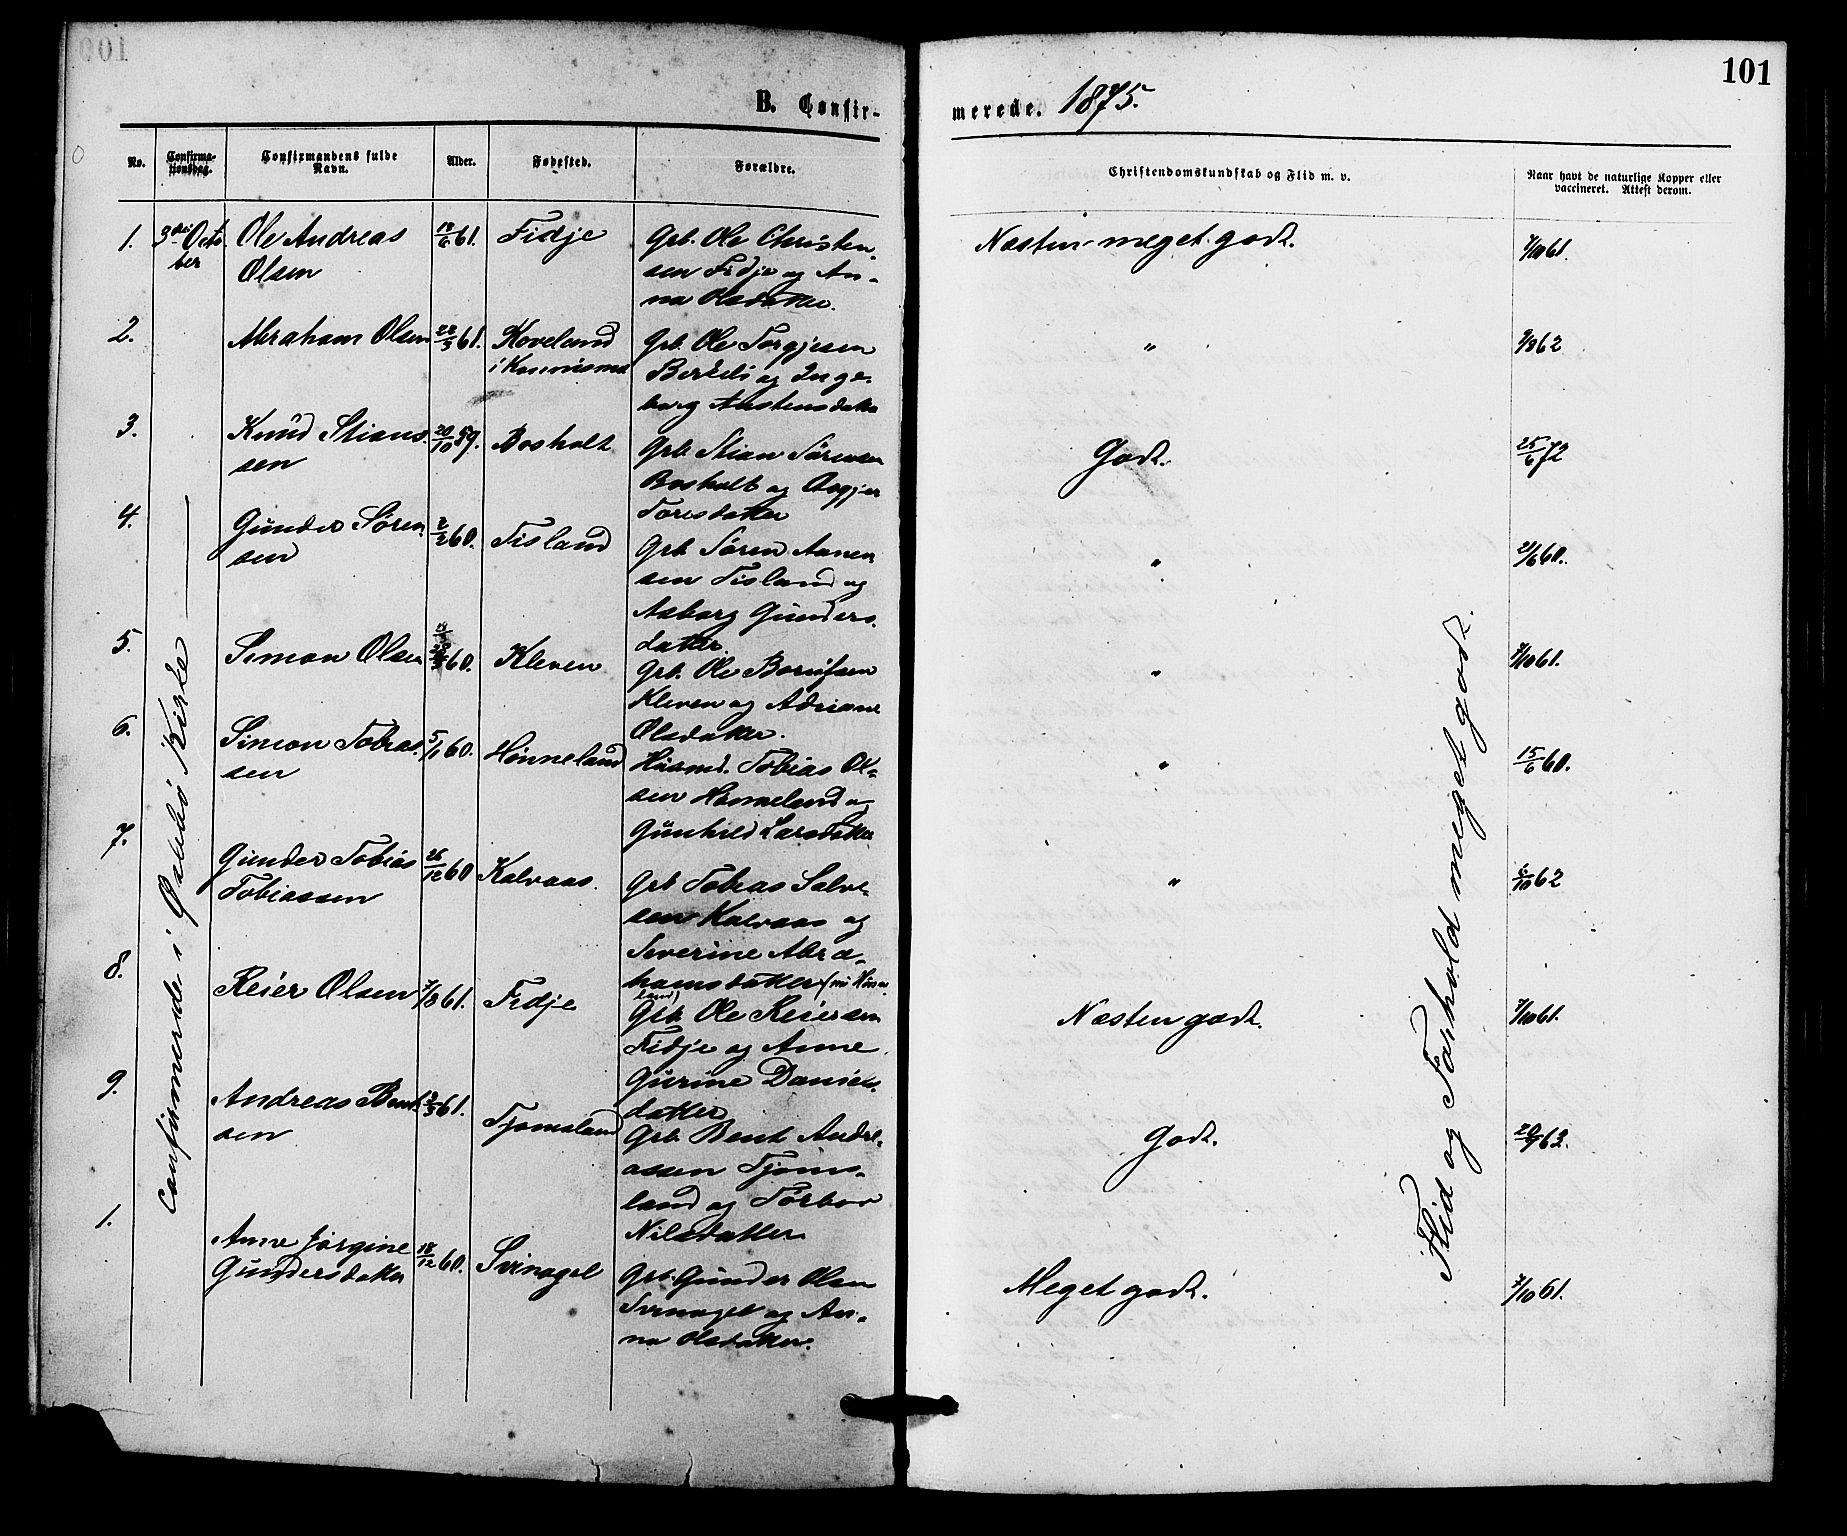 101
B. Confir-
merede. 1875.
No.
Confirma-
tionsdag.
Confirmandens fulde
Navn.
Alder.
Fødested.
Forældre.
Christendomskundskab og Flid m. v.
Naar havt de naturlige Kopper eller
vaccineret. Attest derom.
1. 3die Octo
ber
Ole Andreas
Olsen
61. Fidje
Grb. Ole Christen-
sen Fidje og An-
na Olsdatter.
Næsten meget godt.
7/10 61.
2. Abraham Olsen
22/5 61. Koveland
Grb. Ole Torgjesen
og Inge-
borg Austensdatter
"
9/8 62
3. Knud Stians-
sen
20/10 59. Bosholt
Grb. Stian Sørensen
Bosholt og Asgjer
Toresdatter
Godt.
25/6 72
4. Gunder Søren-
sen
2/2 60. Tisland
Grb. Søren Aanen-
sen Tisland og
Aaborg Gunders-
datter
"
21/6 60.
5. Simon Olsen
60. Kleven
Grb. Ole Borufsen
Kleven og Adriane
Olsdatter.
"
7/10 61.
6. Simon Tobias-
sen
5/1 60. Hønneland
Husmd. Tobias Ol-
sen Hønneland og
Gunhild Larsdatter
"
15/6 60.
7. Gunder Tobias
Tobiassen
26/12 60 Kalvaas.
Grb Tobias Salve-
sen Kalvaas og
Severine Abra-
hamsdatter (nu Hønne-
land)
"
6/10 62
8. Reier Olsen
7/8 61. Fidje
Grb. Ole Reiersen
Fidje og Anne
Gurine Daniels-
datter
Næsten godt.
7/10 61.
9. Andreas Bent-
sen
3/5 61. Tjomsland
Grb. Bent Andre-
assen Tjoms-
land og Torbor
Nilsdatter
Godt.
1. Anne Jørgine
Gundersdatter
18/12 60. Svinagel
Grb. Gunder Olsen
Svinagel og An-
na Olsdatter.
Meget godt.
7/10 61.
Confirmerede i Øslebø Kirke
Flid og Forhold meget godt.